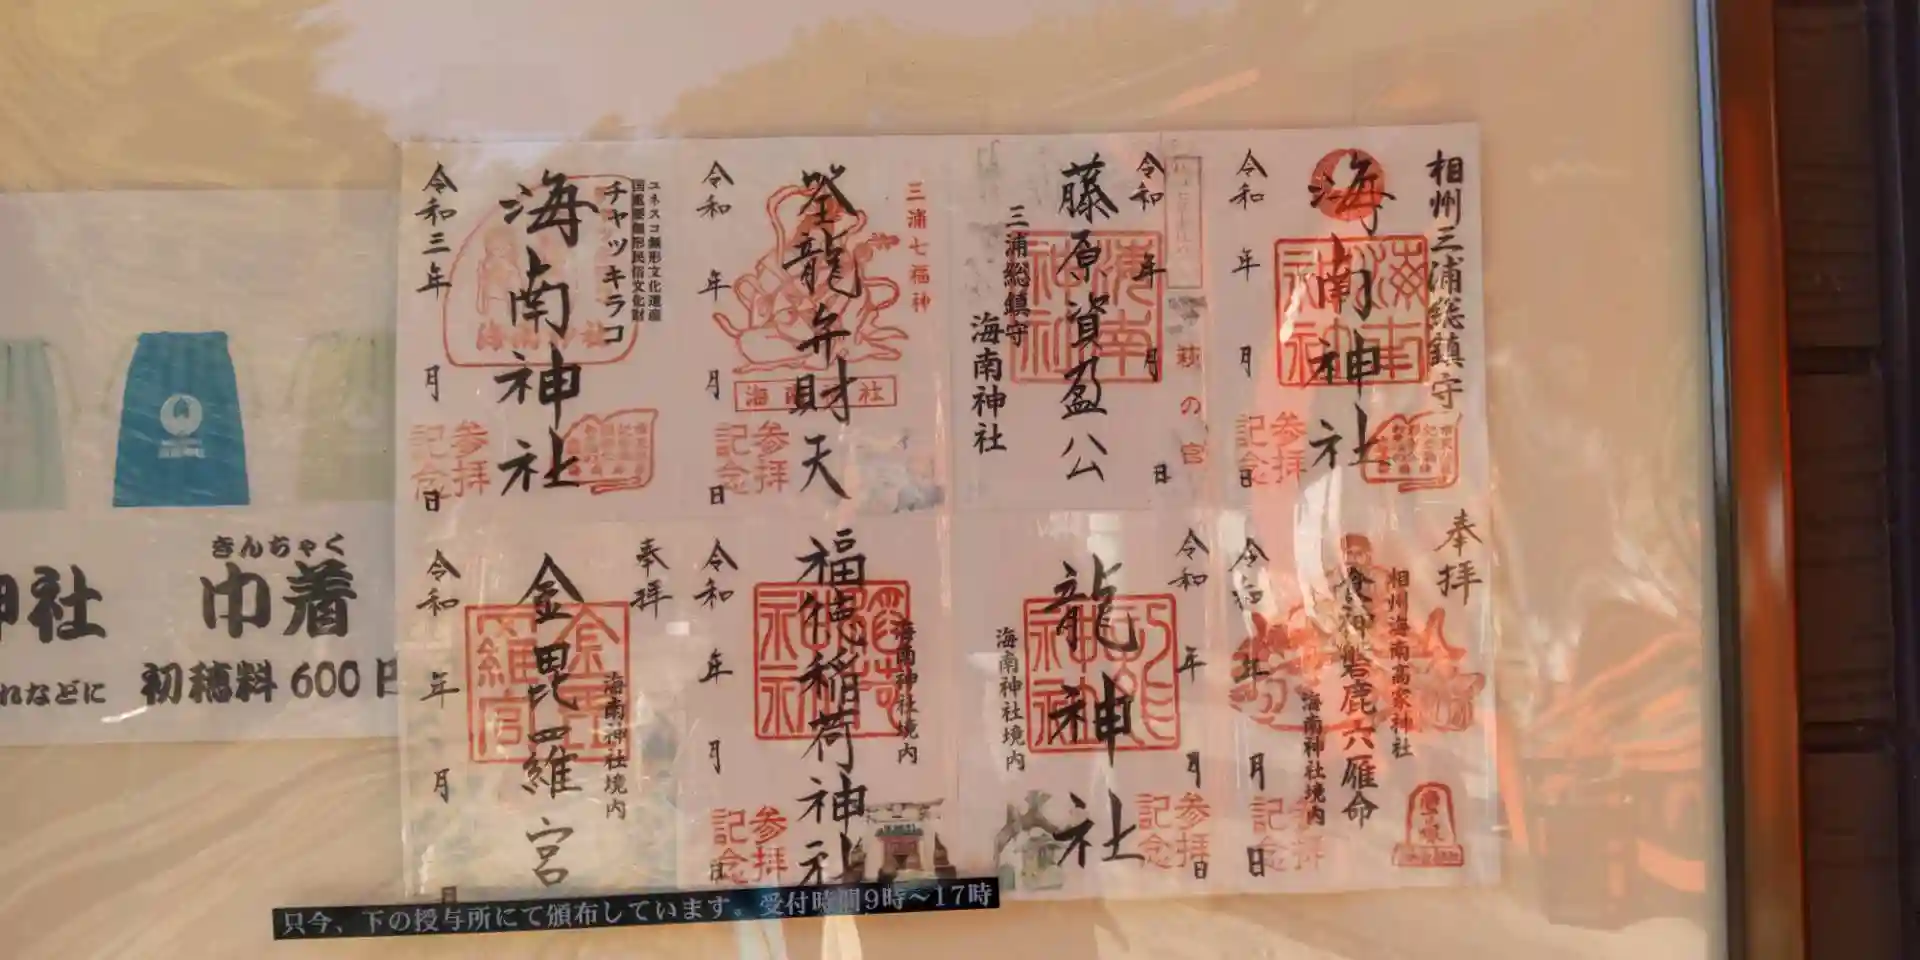 相州三浦総鎮守
海南神社
参拝
記念
令和　年　月　日
萩の宮
令和　年　月　日
藤原資盈公
三浦総鎮守
海南神社
三浦七福神
筌龍弁財天
海南神社
参拝
記念
令和　年　月　日
ユネスコ無形文化遺産
国重要無形民俗文化財
チャッキラコ
海南神社
海南神社
参拝
記念
令和三年　月　日
奉拝
相州海南高家神社
食神磐鹿六雁命
海南神社境内
参拝
記念
令和　年　月　日
令和　年　月　日
龍神社
海南神社境内
参拝
記念
海南神社境内
福徳稲荷神社
参拝
記念
令和　年　月　日
奉拝
海南神社境内
金毘羅宮
令和　年　月　日
神社　巾着
きんちゃく
れなどに　初穂料 600 円
只今、下の授与所にて頒布しています。受付時間9時～17時